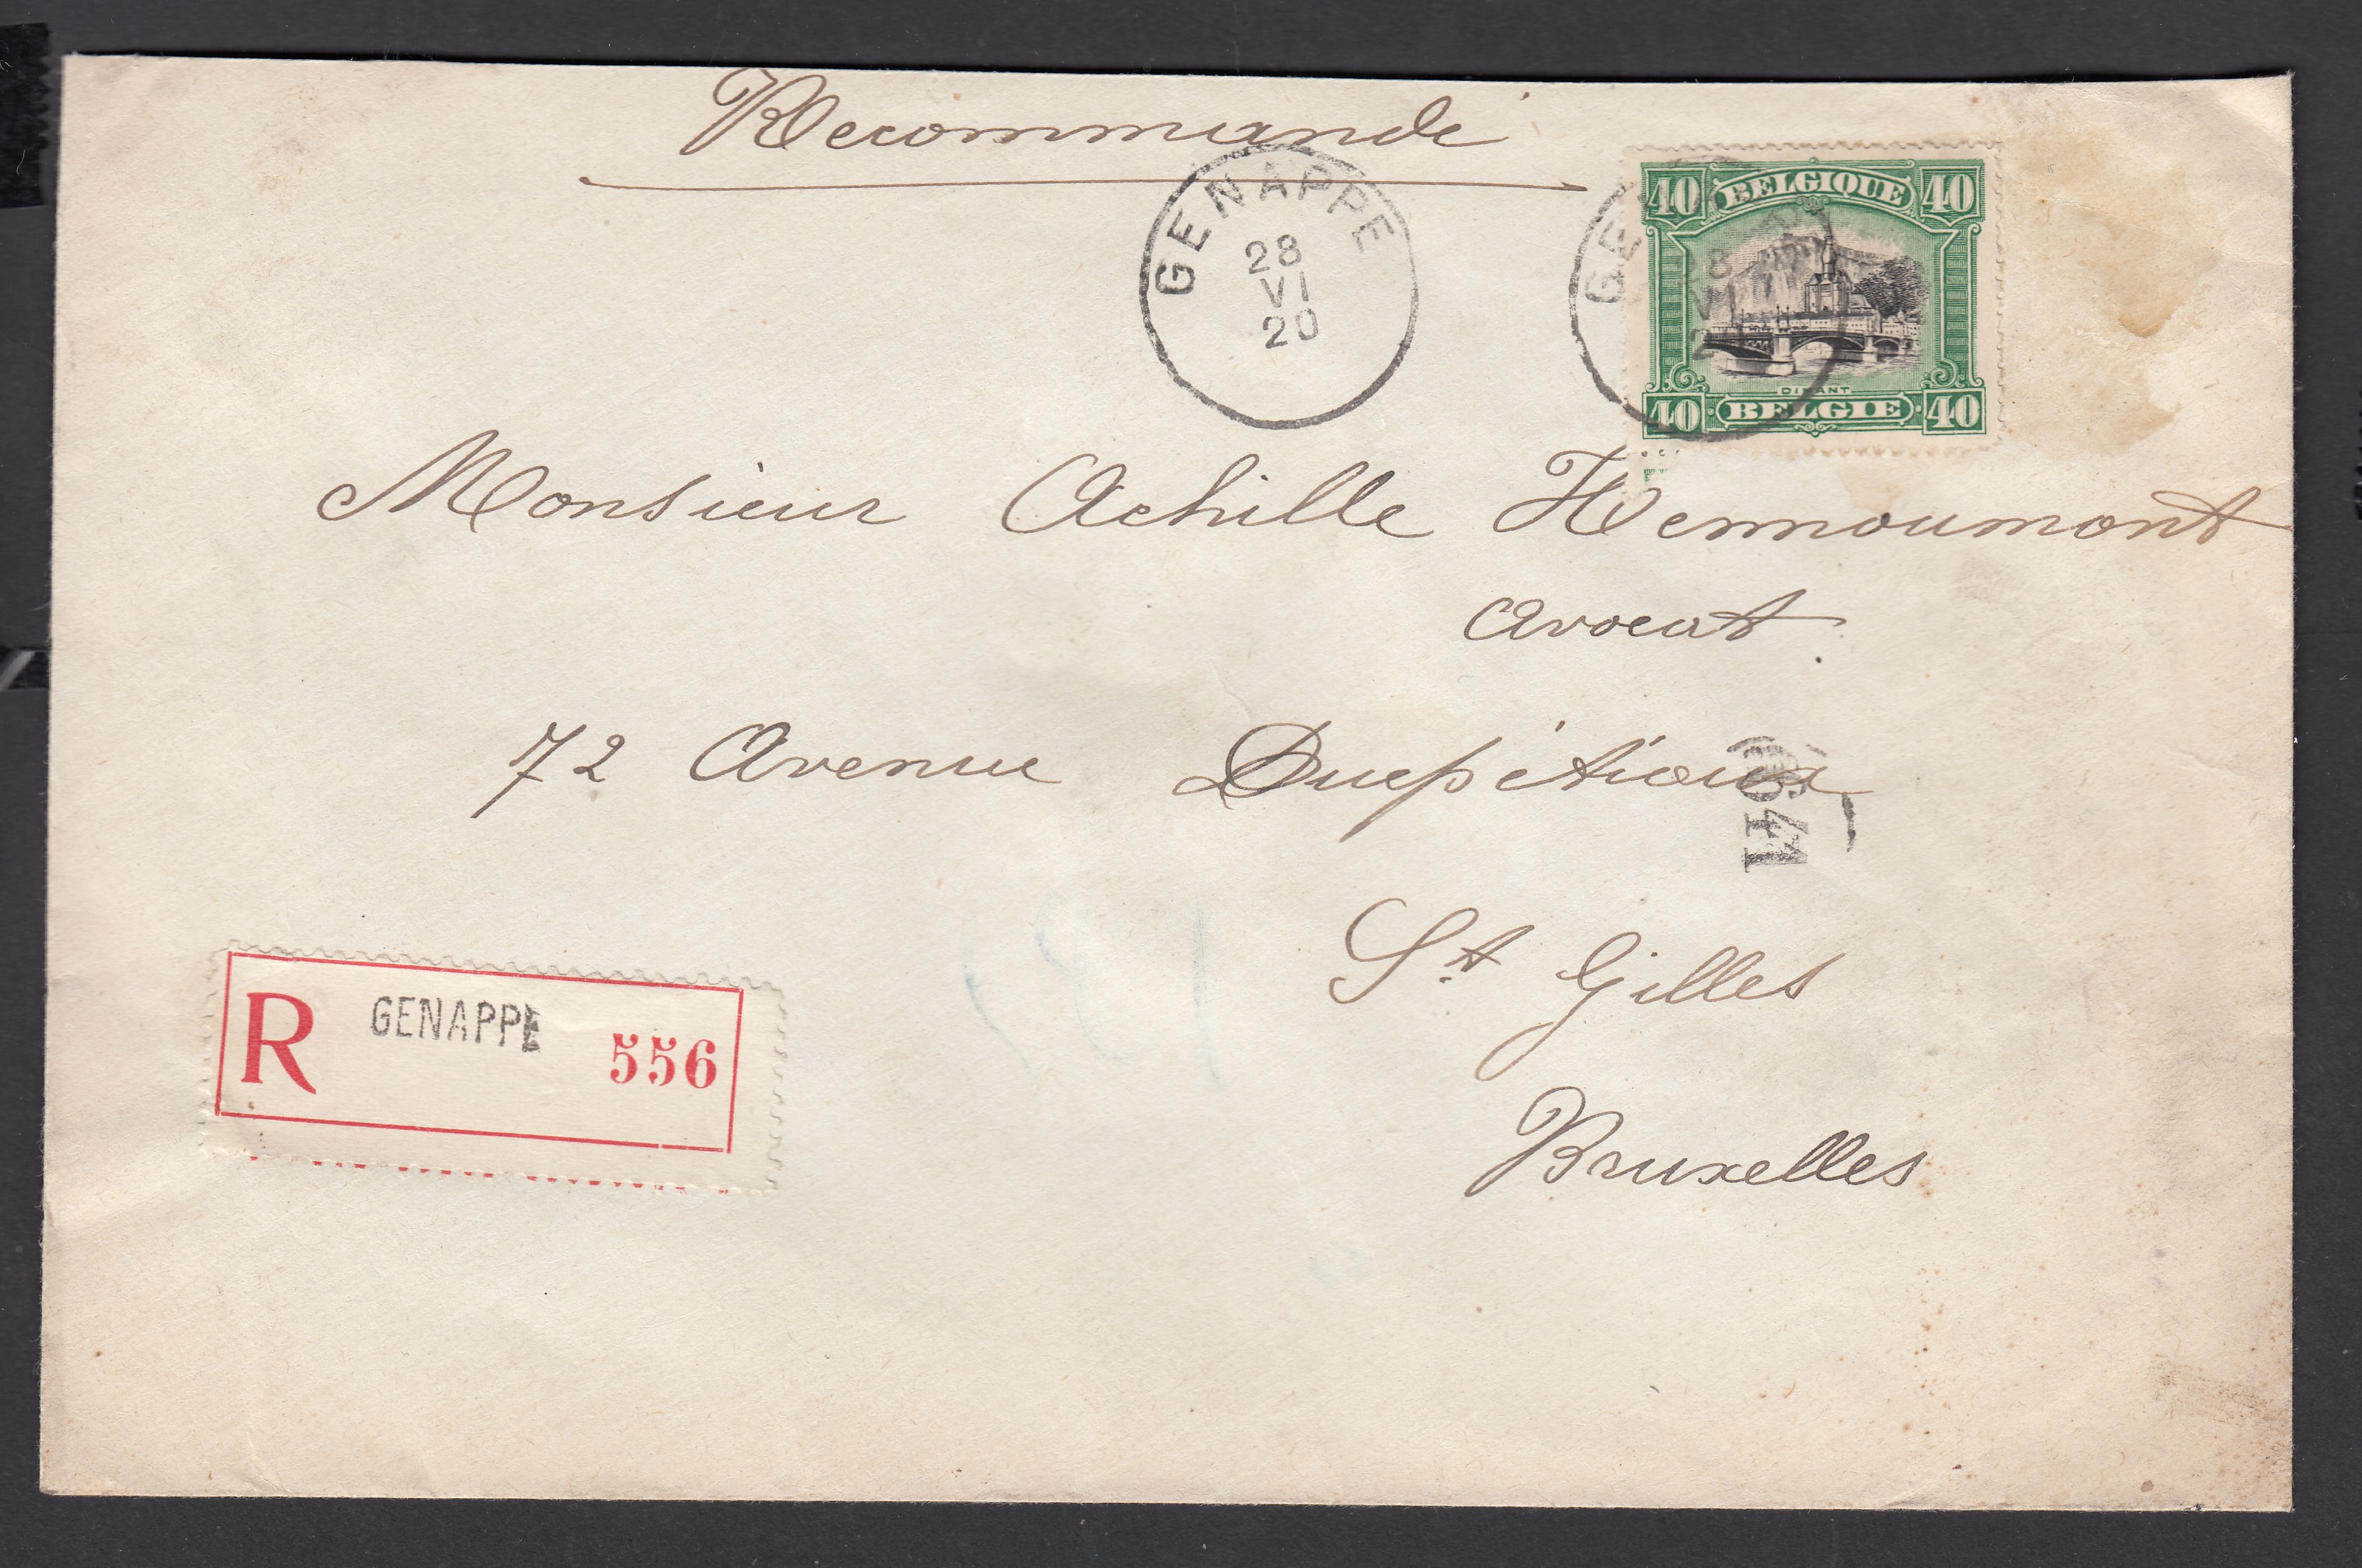 Recommandé
GENAPPE
28
VI
20
GE
28
VI
2
40 BELGIQUE 40
DINANT
40 BELGIE 40
Monsieur Achille Hennoumont
Avocat
72 Avenue Ducpétiaux
St Gilles
Bruxelles
R GENAPPE 556